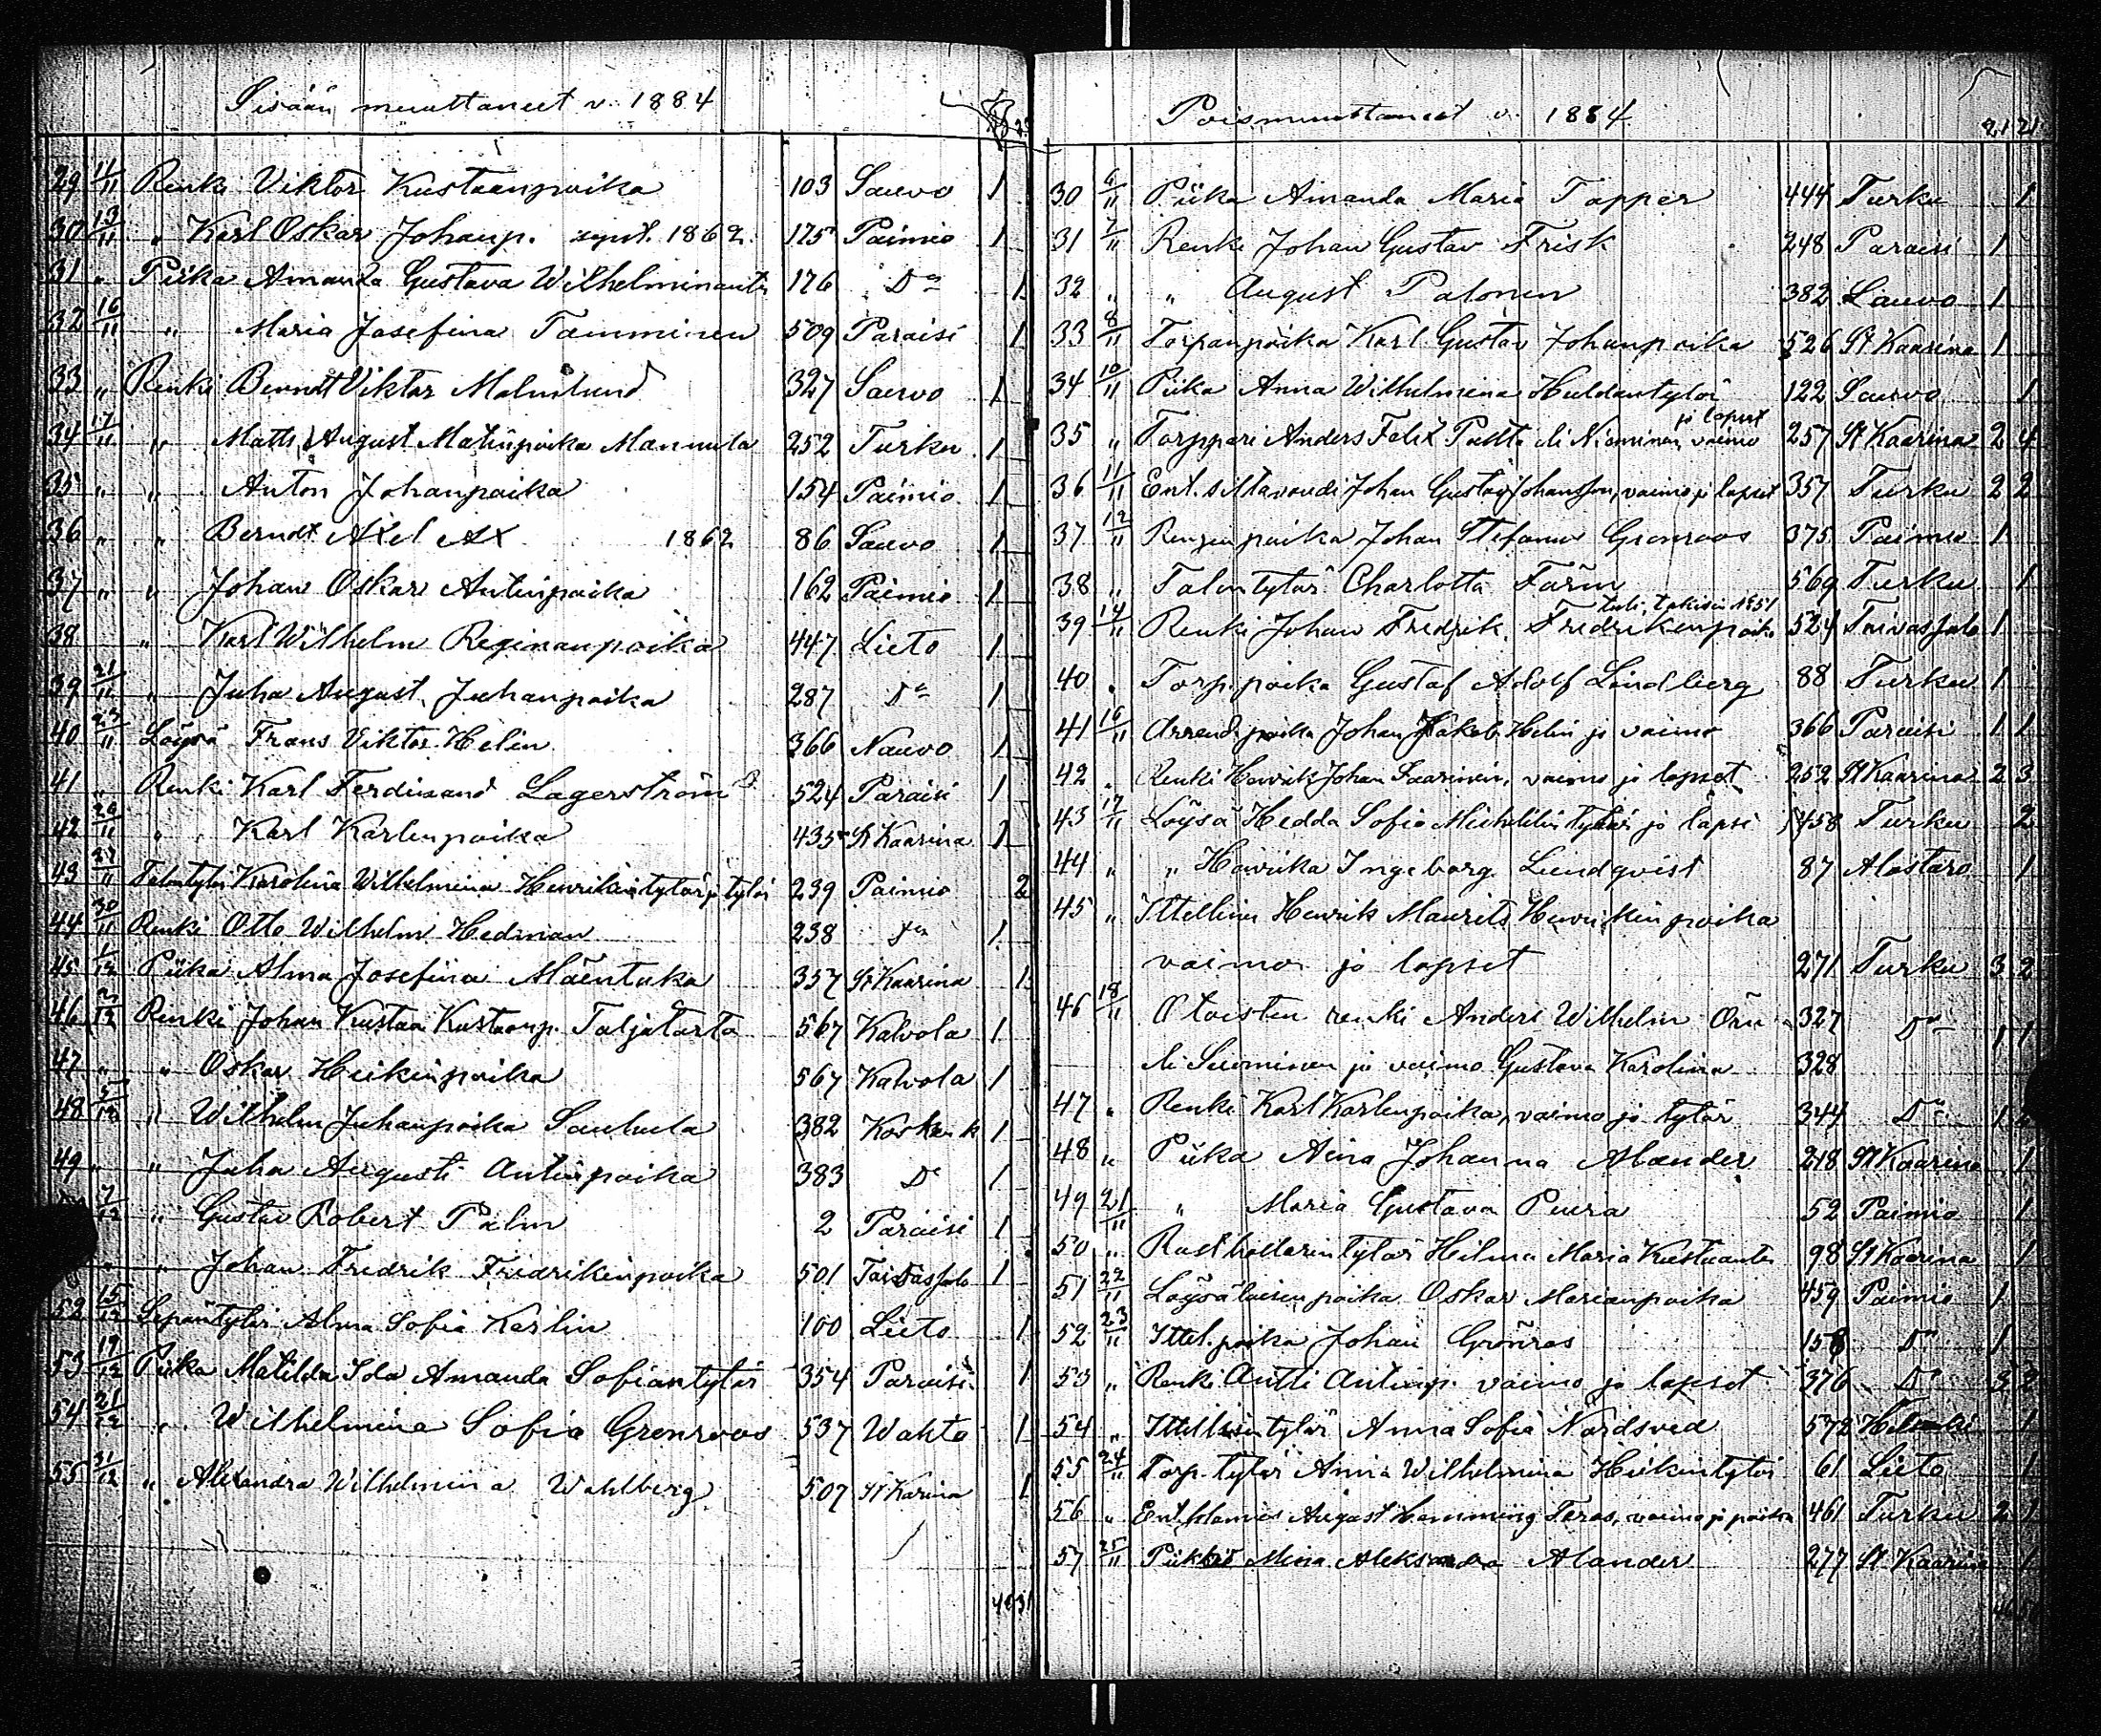 Sisään muuttaneet v. 1884
29 11/11 Renki Viktor Kustaanpoika 103 Sauvo 1
30 13/11 " Karl Oskar Johanp. synt. 1862. 175 Paimio 1
31 " Piika Amanda Gustava Wilhelminant. 176 Do 1
32 16/11 " Maria Josefina Tamminen 509 Paraisi 1
33 " Renki Berndt Viktor Malmlund 327 Sauvo 1
34 17/11 " Matts August Matinpoika Mannula 252 Turku 1
35 " " Anton Johanpoika 154 Paimio 1
36 " " Berndt Axel Ax 1862 86 Sauvo 1
37 " " Johan Oskar Antinpoika 162 Paimio 1
38 " Karl Wilhelm Reginanpoika 447 Lieto 1
39 21/11 " Juha August Juhanpoika 287 Do 1
40 23/11 Löysä Frans Viktor Helin 366 Nauvo 1
41 " Renki Karl Ferdinand Lagerström 524 Paraisi 1
42 " Karl Karlenpoika 435 St Kaarina 1
43 Talontytär Karolina Wilhelmina Henrikintytär ja tytär 239 Paimio 2
44 30/11 Renki Otto Wilhelm Hedman 238 Do 1
45 1/12 Piika Alma Josefina Mäentaka 357 St Kaarina 1
46 2/12 Renki Johan Kustaa Kustaanp. Taljatarta 567 Kalvola 1
47 " " Oskar Heikinpoika 567 Kalvola 1
48 5/12 " Wilhelm Juhanpoika Sauhula 382 Kosken k 1
49 " " Juha Augusti Antinpoika 383 Do 1
7/12 " Gustav Robert Palm 2 Paraisi 1
" " Johan Fredrik Fredrikinpoika 501 Taivassalo 1
52 15/12 Sepäntytär Alma Sofia Karlin 100 Lieto 1
53 19/12 Piika Matilda Ida Amanda Sofiantytär 354 Paraisi 1
54 21/12 " Wilhelmina Sofia Grenroos 537 Wahto 1
55 31/12 " Alexandra Wilhelmina Wahlberg 507 St Karina 1
Poismuuttaneet v. 1884
21 21
30 6/11 Piika Amanda Maria Tapper 444 Turku 1
31 7/11 Renki Johan Gustav Frisk 248 Paraisi 1
32 " " August Palonen 382 Sauvo 1
33 8/11 Torpanpoika Karl Gustav Johanpoika 526 St Kaarina 1
34 10/11 Piika Anna Wilhelmina Huldantytär 122 Sauvo 1
ja lapset
35 " Torppari Anders Felix Palsta eli Nieminen, vaimo 257 St Kaarina 2 4
36 11/11 Ent. siltavouti Johan Gustav Johansson, vaimo ja lapset 357 Turku 2 2
37 12/11 Rengin poika Johan Stefanus Gronroos 375 Paimio 1
38 " Talontytär Charlotta Färm 569 Turku 1
tuli takisin 1851
39 14/11 Renki Johan Fredrik Fredrikinpoika 524 Taivassalo 1
40 " Torp. poika Gustaf Adolf Lindberg 88 Turku 1
41 16/11 Arrend. poika Johan Jakob Helin ja vaimo 366 Paraisi 1 1
42 " Renki Henrik Johan Saarinen, vaimo ja lapset 252 St Kaarina 2 3
43 17/11 Löysä Hedda Sofia Mickelintytär ja lapsi 458 Turku 2
44 " " Henrika Ingeborg Lindqvist 87 Alastaro 1
45 " Ittellinen Henrik Maurits Henrikinpoika
vaimo ja lapset 271 Turku 3 2
46 18/11 Oloisten renki Anders Wilhelm Örn 327 Do 1 1
eli Suominen ja vaimo Gustava Karolina 328
47 " Renki Karl Karlenpoika, vaimo ja tytär 344 Do 1 2
48 " Piika Aina Johanna Alander 218 St Kaarina 1
49 21/11 " Maria Gustava Puira 52 Paimio 1
50 " Rusthollarintytär Hilma Maria Kustaant. 98 St Kaarina 1
51 22/11 Löysäläisenpoika Oskar Marianpoika 459 Paimio 1
52 23/11 Ittel. poika Johan Grönroos 158 Do 1
53 " Renki Antti Antinp. vaimo ja lapset 376 Do 3 2
54 " Ittellisentytär Anna Sofia Nordsved 572 Helsinki 1
55 24/11 Torp. tytär Anna Wilhelmina Heikintytär 61 Lieto 1
56 " August Hemming Feras, vaimo ja poika 461 Turku 2 1
57 25/11 Piika Mina Aleksandra Alander 277 St Kaarina 1